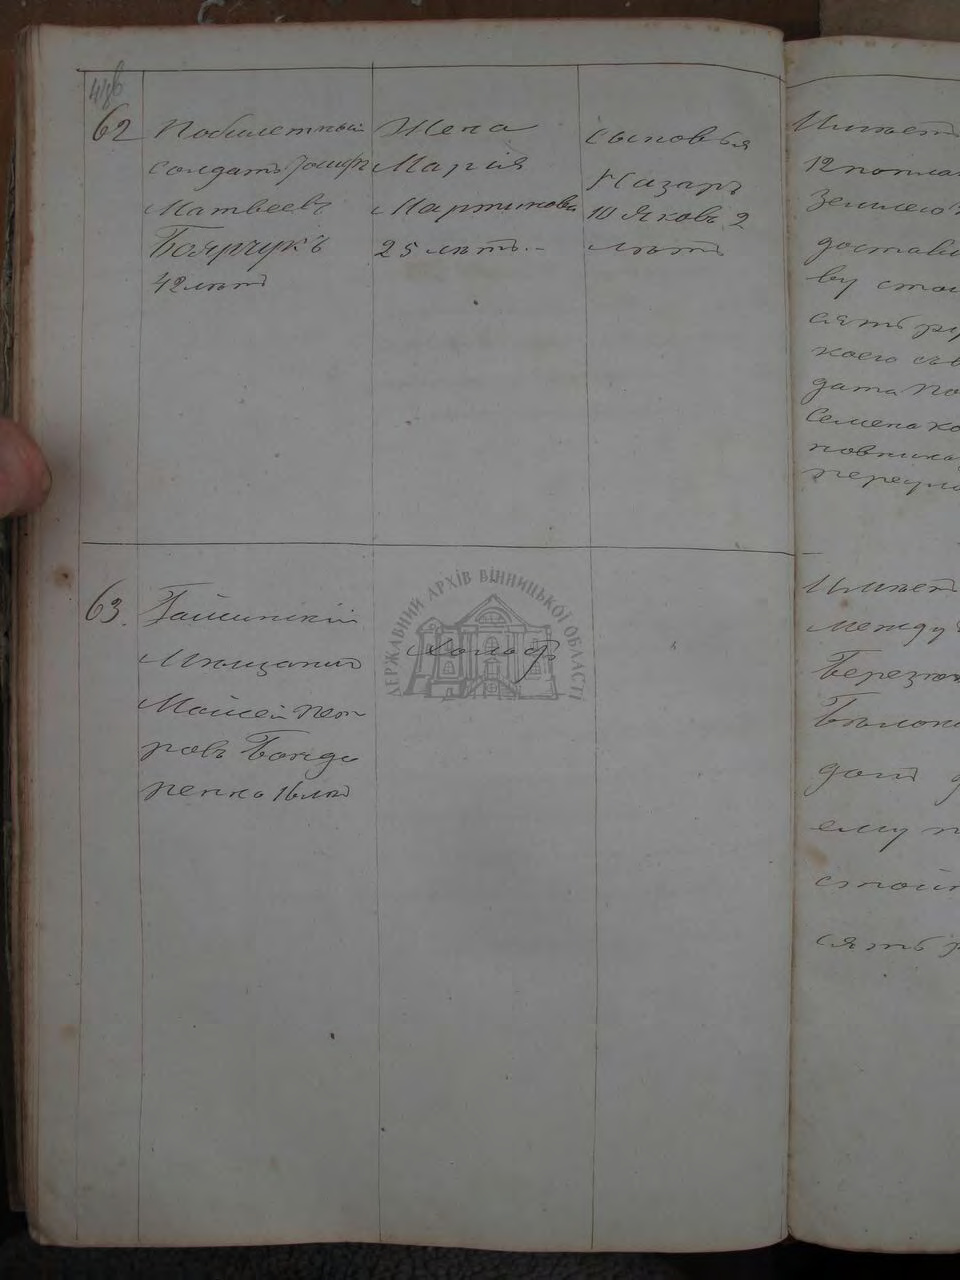 62
Побилетный
солдатъ Іосифъ
Матвеевъ
Боярчукъ
42 лѣтъ
Жена
Марія
Мартинова
25 лѣтъ.-
сыновья
Назаръ
10 Яковъ 2
лѣтъ
Имѣет
12
Землею
достав
ву стои
сятъ ру
коего съ
дата По
Семена
переул
63.
Мѣщанинъ
Мойсей Пет
ровъ Бонда
ренко 16 лѣт
Холостъ
Имѣет
между
Берез
дои
ему п
стои
сятъ р
ДЕРЖАВНИЙ АРХІВ ВІННИЦЬКОЇ ОБЛАСТІ